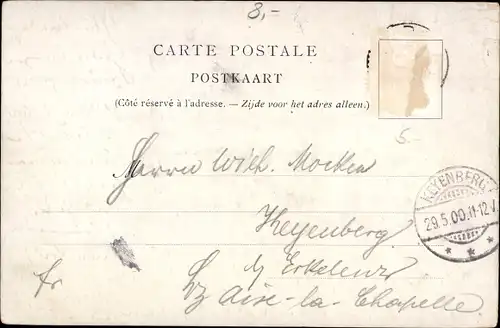 8,-
CARTE POSTALE
POSTKAART
(Côté réservé à l'adresse. — Zijde voor het adres alleen.)
5.-
Herrn Wilh. Mocken
KEYENBERG
29.5.00.11-12V
Keyenberg
b/ Erkelenz
Bz Aix-la-Chapelle
fr